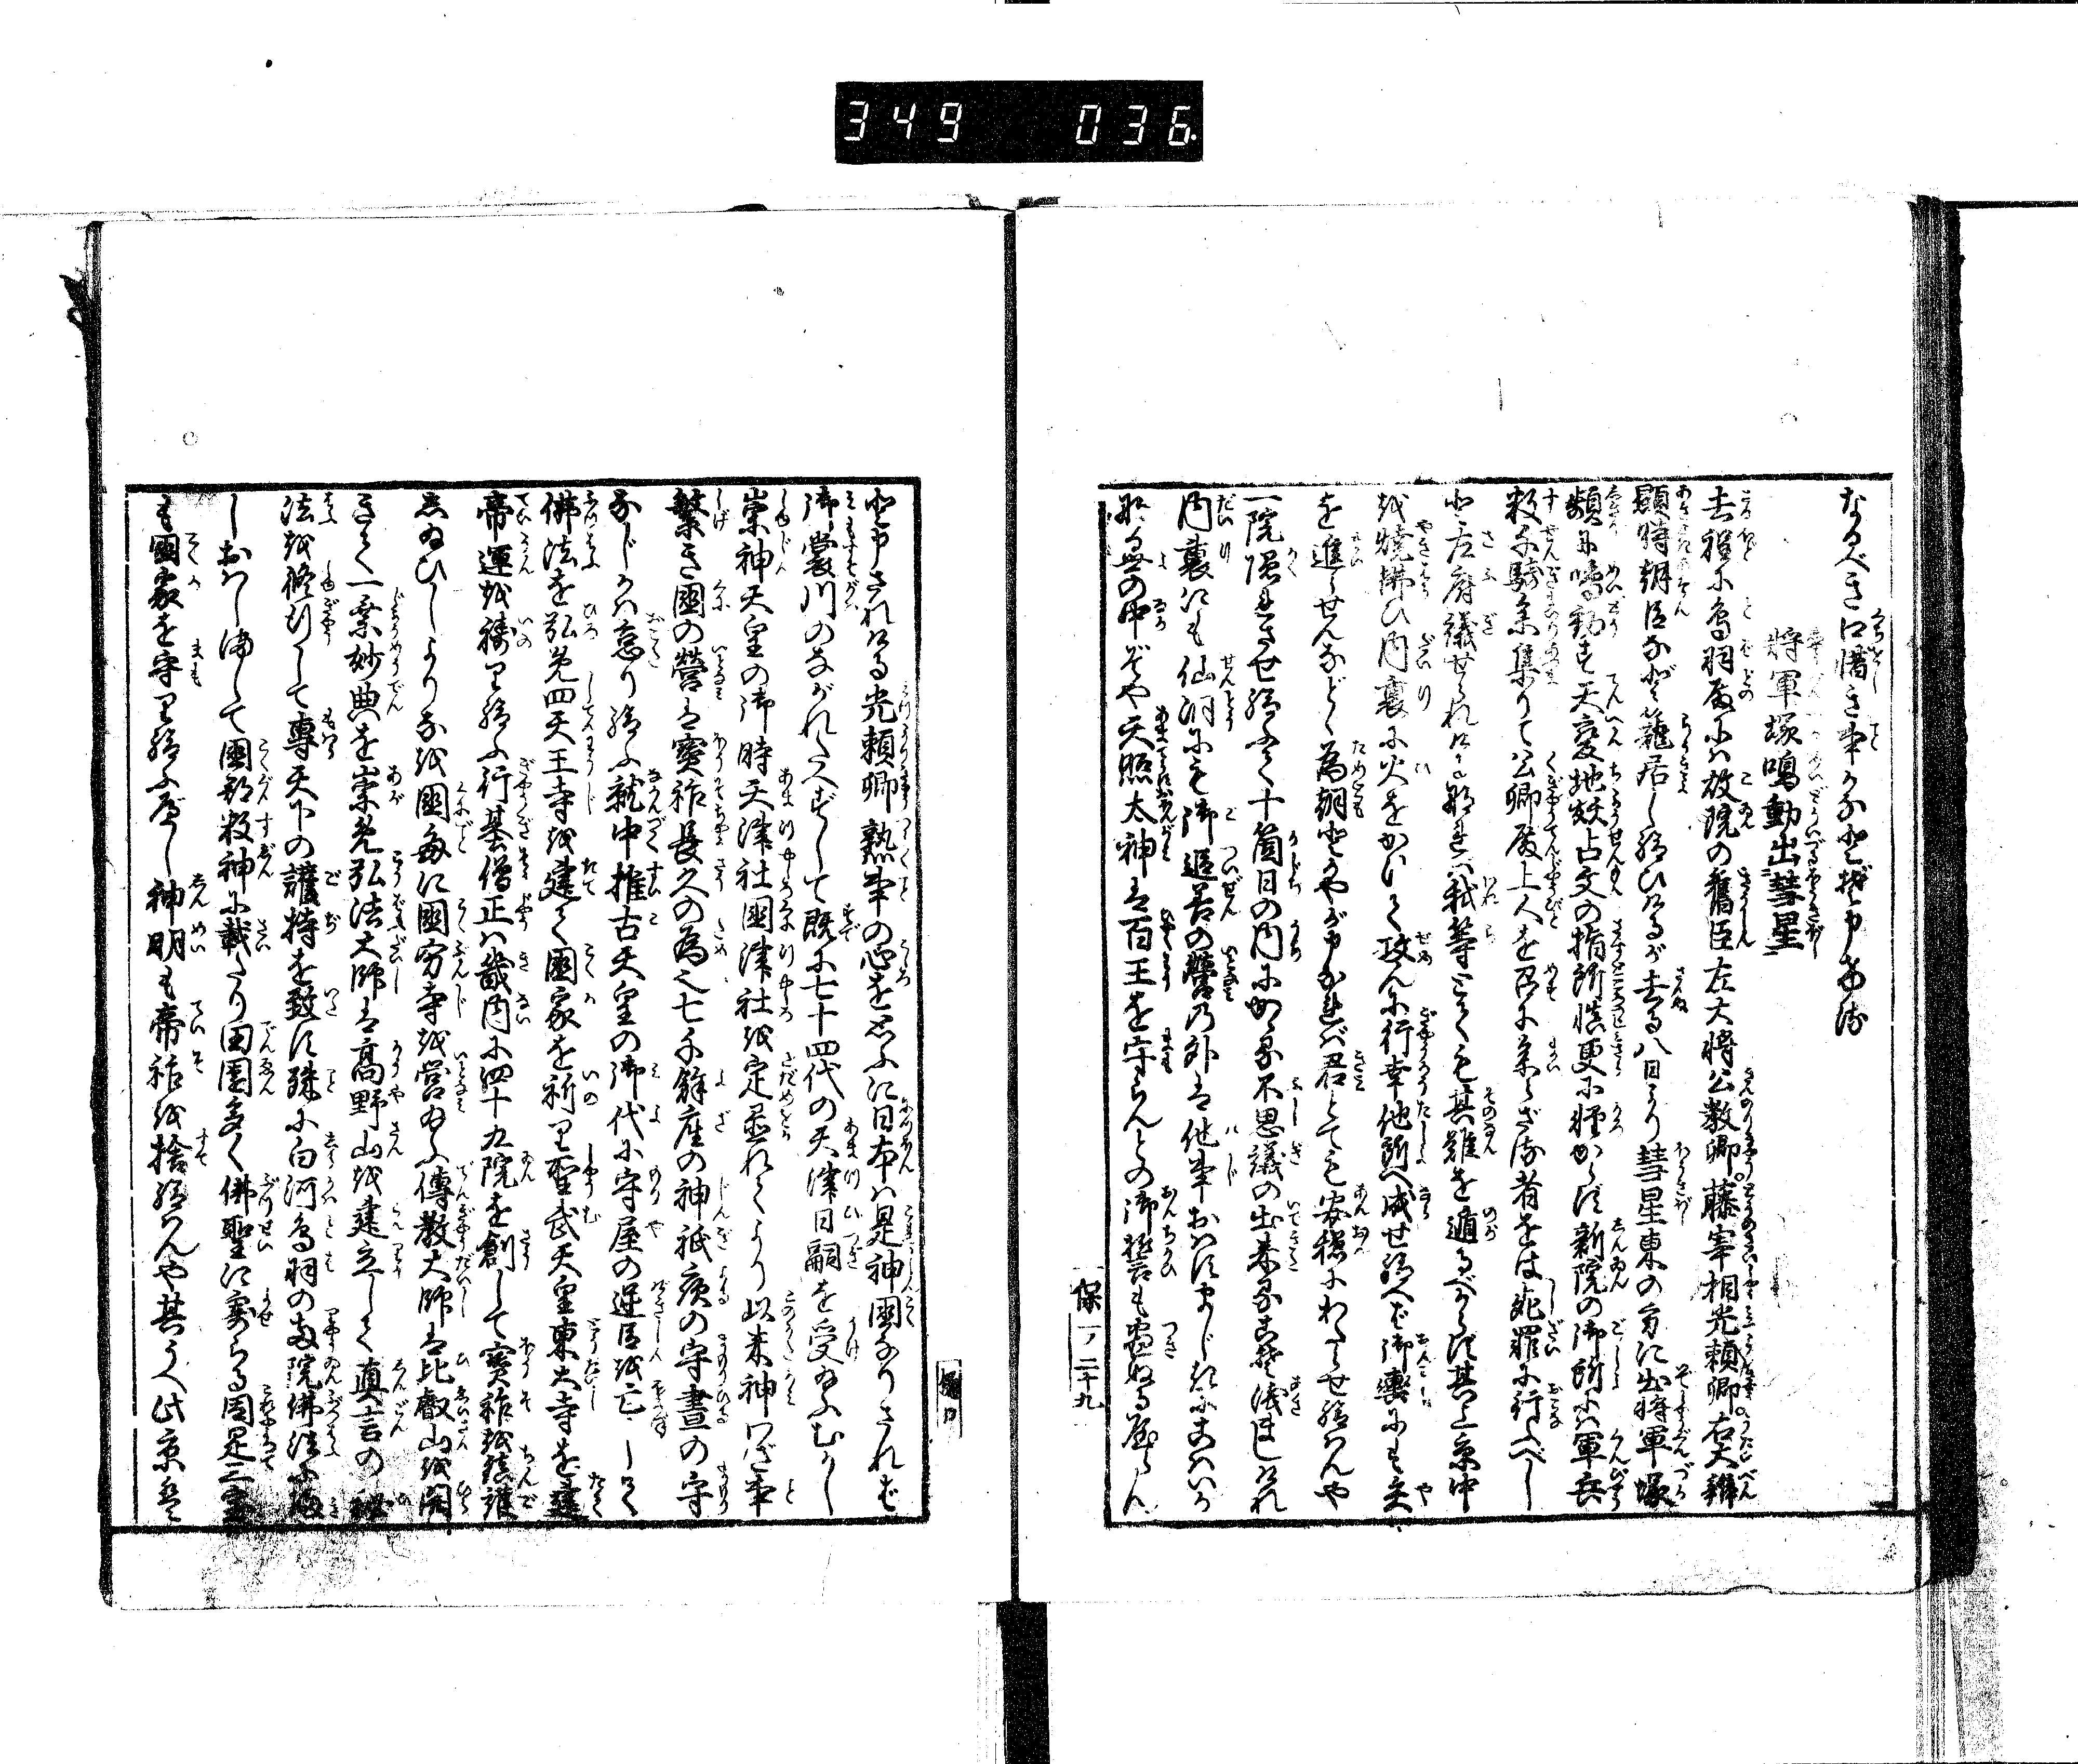 349 036.
なるべき口惜き事かなとぞ申ける
将軍塚鳴動出彗星
去程に鳥羽殿には故院の舊臣左大將公教卿。藤宰相光頼卿。右大辨
顯時朝臣など籠居し給ひけるが去る八日より彗星東の方に出將軍塚
頻に鳴動す天變地妖占文の指所慎更に輕からず新院の御所には軍兵
数千騎参集りて公卿殿上人を召に参らざる者をは死罪に行ふべし
と左府議せられける我等とても其難を遁るべからず其上京中
を燒拂ひ内裏に火をかけて攻んに行幸他所へ成せ給へば御輿にも矢
を進らせんなどゝ為朝とかやが申なれば君とても安穏にわたらせ給はんや
一院隠れさせ給て十箇日の内にかゝる不思議の出来る
内裏にも仙洞にも御追善の營の外は他事おはすまじきに
世の中ぞや天照太神は百王を守らんとの御誓も盡ぬるやらん
と申されける光頼卿熟事の心を思ふに日本は是神國なりされば
御裳川のながれたえずして既に七十四代の天津日嗣を受給ふむかし
崇神天皇の御時天津社國津社を定置れてより以来神わざ事
繁き國の營は寳祚長久の為也七千餘座の神祇夜の守晝の守
なじかは怠り給ふ就中推古天皇の御代に守屋の逆臣を亡して
佛法を弘め四天王寺を建て國家を祈り聖武天皇東大寺を建
帝運を祷り給ふ行基僧正は畿内に四十九院を創して寳祚を鎮護
し給ひしよりなを國毎に國分寺を營給ふ傳教大師は比叡山を開
きて一乗妙典を崇め弘法大師は高野山を建立して真言の秘
法を修行して專天下の護持を致す殊に白河鳥羽の両院佛法に帰
しおはしまして國郡数神に載たり田園多く佛聖に寄らる固是三宝
も國家を守り給ふべし神明も帝祚を捨給はんや其うへ此京は
保一ノ二十九